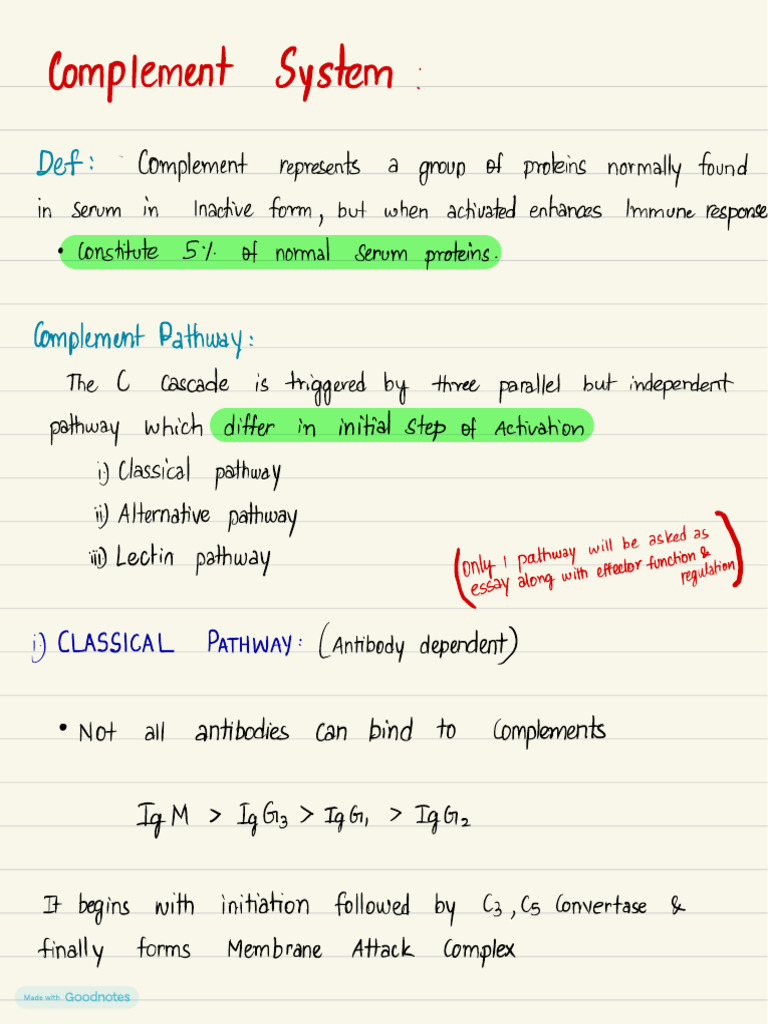 Complement System:
Def: Complement represents a group of proteins normally found
in serum in Inactive form, but when activated enhances Immune response
• Constitute 5% of normal serum proteins.
Complement Pathway:
The C cascade is triggered by three parallel but independent
pathway which differ in initial step of Activation
i) Classical pathway
ii) Alternative pathway
iii) Lectin pathway
(Only 1 pathway will be asked as
essay along with effector function &
regulation)
i) CLASSICAL PATHWAY: (Antibody dependent)
• Not all antibodies can bind to Complements
IgM > IgG3 > IgG1 > IgG2
It begins with initiation followed by C3, C5 Convertase &
finally forms Membrane Attack Complex
Made with Goodnotes